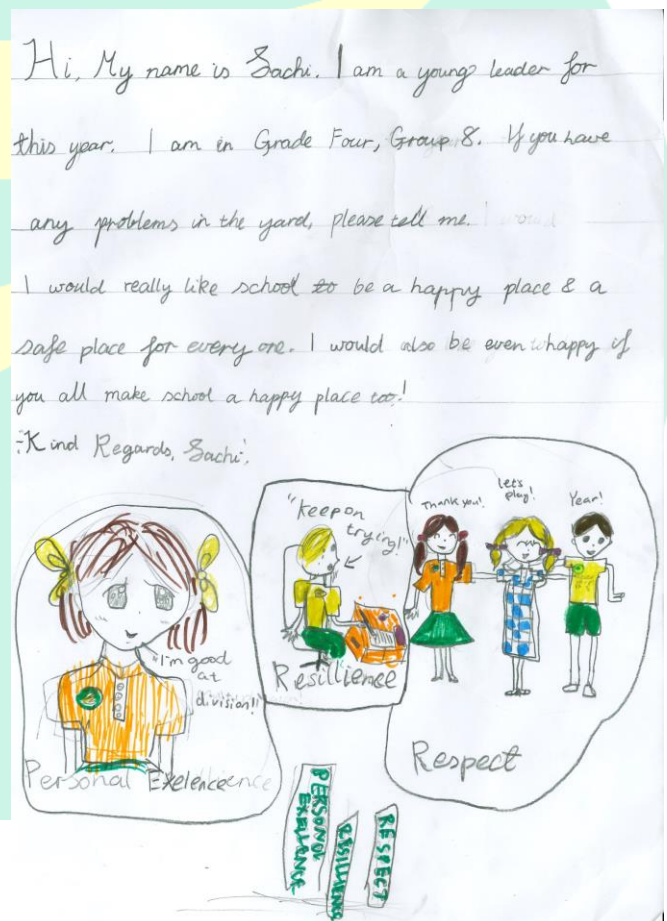 Hi, My name is Sachi. I am a young leader for
this year. I am in Grade Four, Group 8. If you have
any problems in the yard, please tell me. I would
I would really like school to be a happy place & a
safe place for every one. I would also be even happy if
you all make school a happy place too!
-Kind Regards, Sachi.
"Keep on
trying!"
Thank you!
Let's
play!
Year!
"I'm good
at
division!"
Resillience
Personal Exelence
Respect
PERSONOL
EXELLENCE
RESILLIENCE
RESPECT